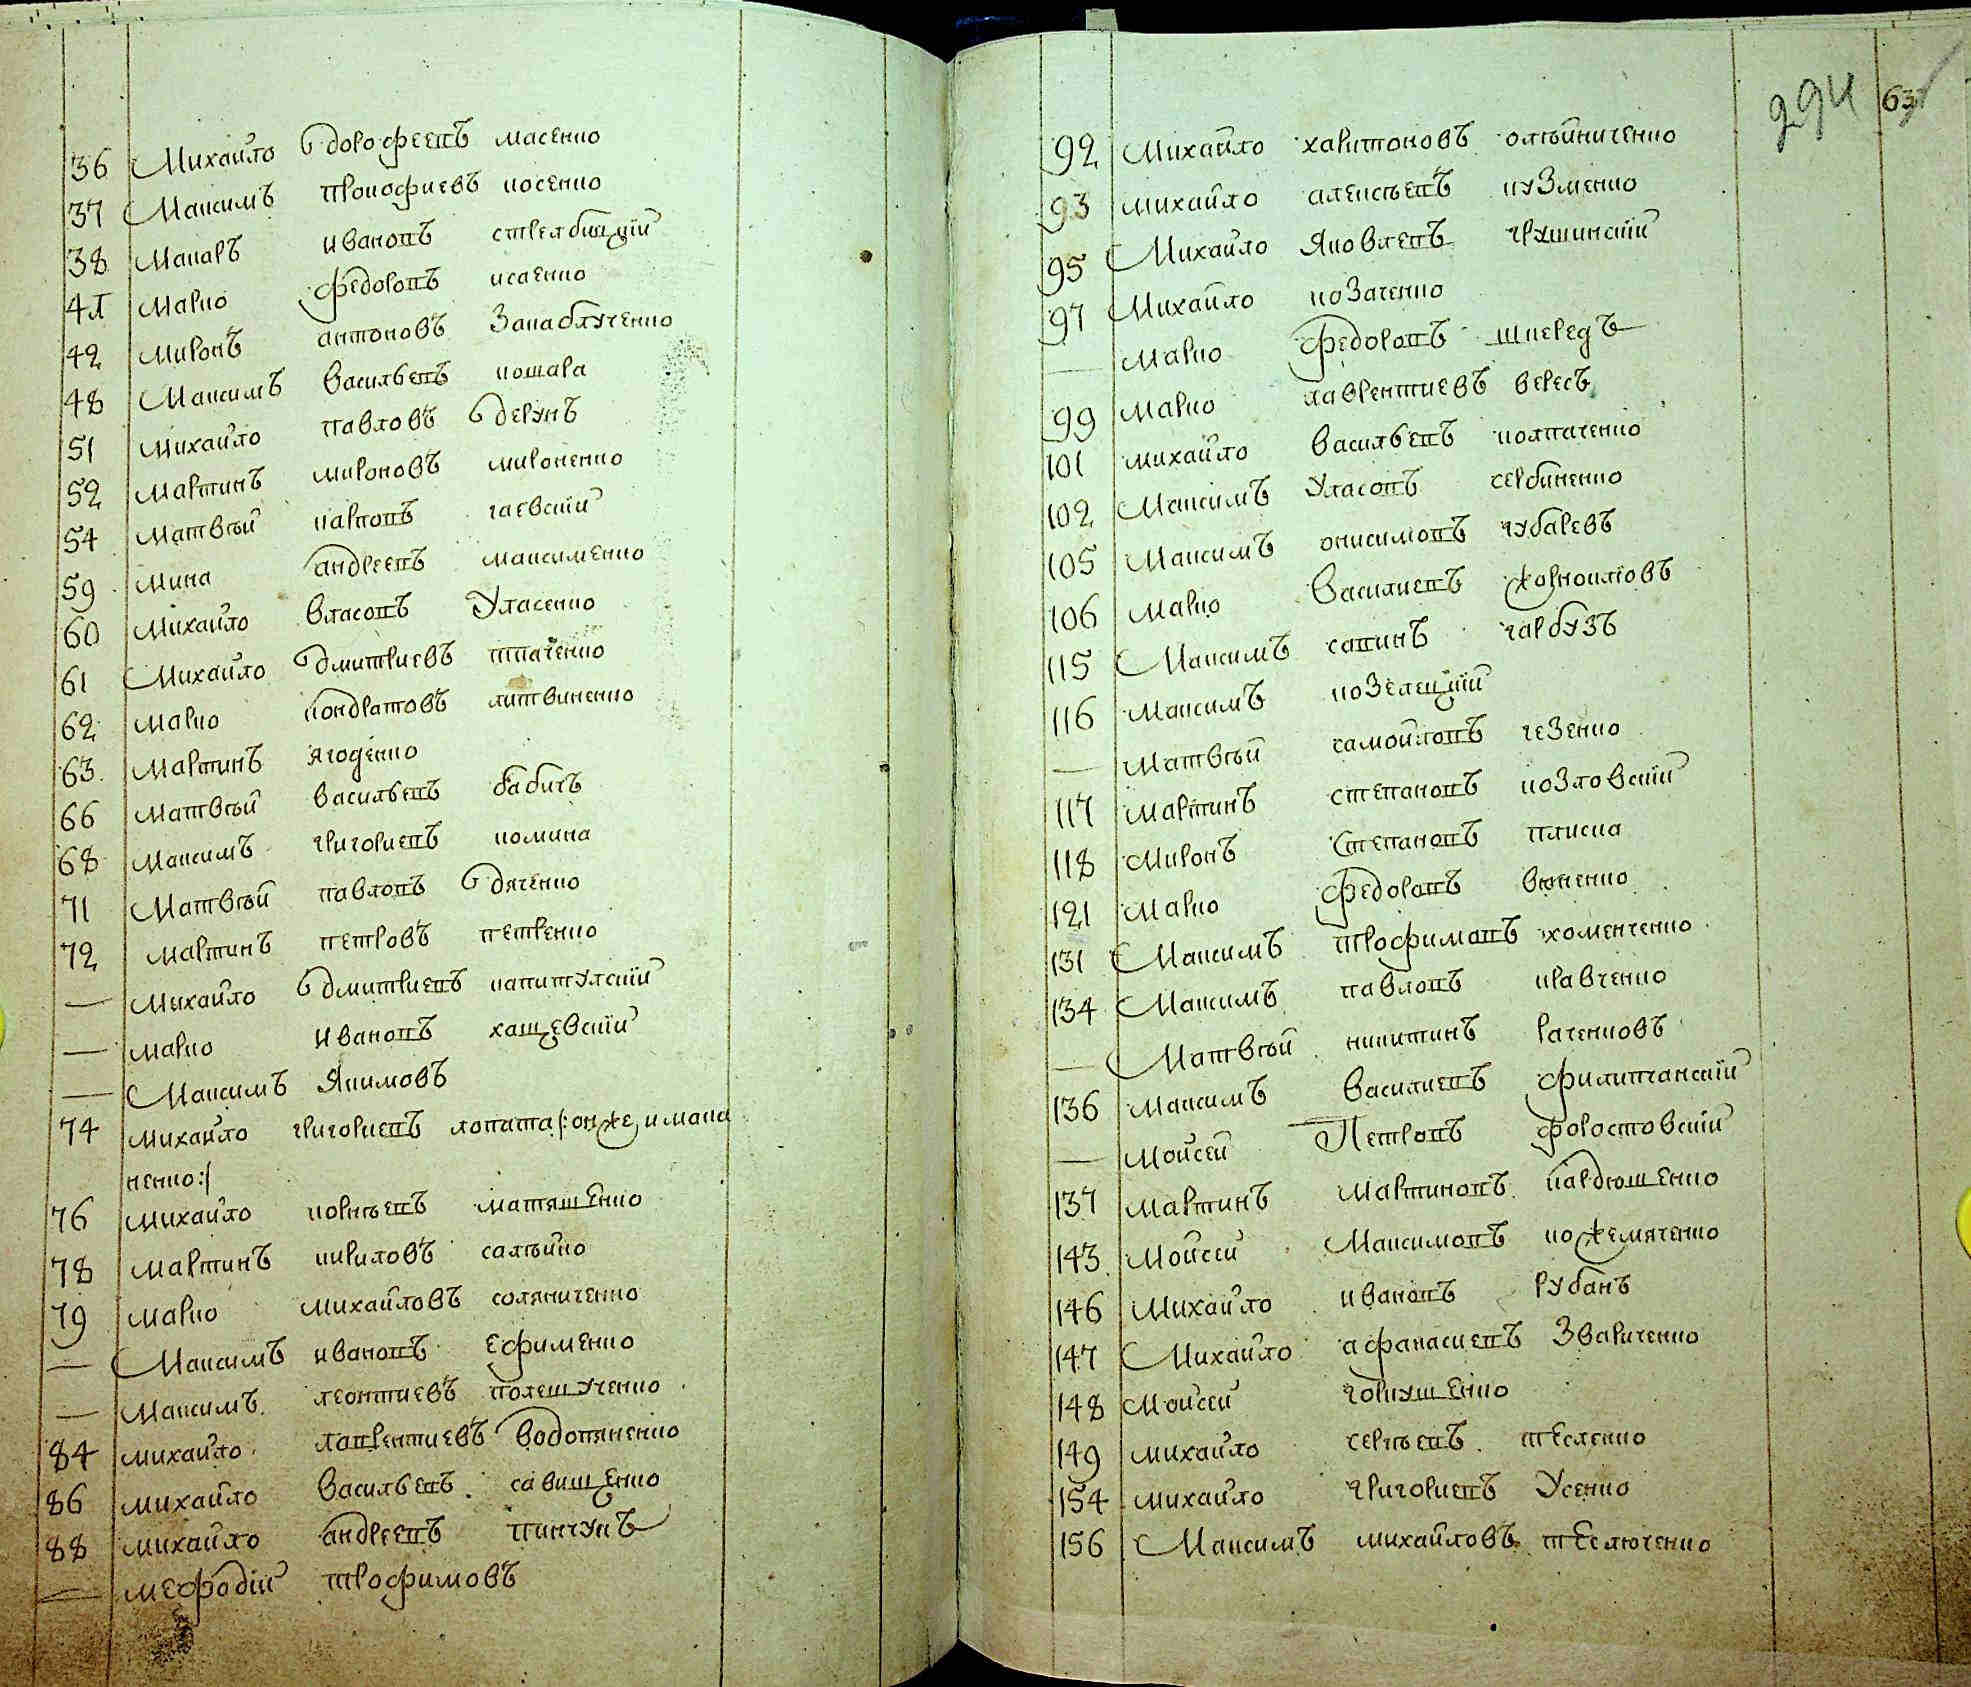 36 Михайло дорофеевъ масенко
37 Максимъ прокофиевъ косенко
38 Макаръ ивановъ стрелбицкїй
41 Марко федоровъ исаенко
42 Миронъ антоновъ Закаблученко
48 Максимъ васильевъ кошара
51 Михайло павловъ дегунъ
52 Мартинъ мироновъ мироненко
54 Матвѣй карповъ гаевскїй
59 Мина андреевъ максименко
60 Михайло власовъ Уласенко
61 Михайло дмитриевъ ткаченко
62 Марко кондратовъ литвиненко
63 Мартинъ ягоденко
66 Матвѣй васильевъ бабичъ
68 Максимъ григориевъ комика
71 Матвѣй павловъ дяченко
72 Мартинъ петровъ петренко
— Михайло дмитриевъ капитулскїй
— Марко ивановъ хащевскїй
— Максимъ Якимовъ
74 Михайло григориевъ лопата/:онже, и мана
ненко:/
76 Михайло корнѣевъ матяшенко
78 Мартинъ кириловъ салѣйко
79 Марко михайловъ соляниченко
— Максимъ ивановъ ефименко
— Максимъ леонтиевъ полешученко
84 Михайло лаврентиевъ водопяненко
86 Михайло васильевъ савищенко
88 Михайло андреевъ пинчукъ
— Мефодїй трофимовъ
294 63
92 Михайло харитоновъ олѣйниченко
93 Михайло алексѣевъ кузменко
95 Михайло Яковлевъ грушинскїй
97 Михайло козаченко
— Марко федоровъ шкередъ
99 Марко лаврентиевъ вересъ
101 Михайло васильевъ колпаченко
102 Максимъ Уласовъ сербиненко
105 Максимъ онисимовъ губаревъ
106 Марко василиевъ жорноклювъ
115 Максимъ савинъ гарбузъ
116 Максимъ козелецкїй
— Матвѣй самойловъ гезенко
117 Мартинъ степановъ козловскїй
118 Миронъ степановъ плиска
121 Марко федоровъ вюненко
131 Максимъ трофимовъ хоменченко
134 Максимъ павловъ кравченко
— Матвѣй никитинъ раченковъ
136 Максимъ василиевъ филипчанскїй
— Мойсей Петровъ форостовскїй
137 Мартинъ Мартиновъ кардюшенко
143 Мойсей Максимовъ кожемяченко
146 Михайло ивановъ рубанъ
147 Михайло афанасиевъ Звариченко
148 Мойсей горкушенко
149 Михайло сергѣевъ тесленко
154 Михайло григориевъ Усенко
156 Максимъ михайловъ теслюченко